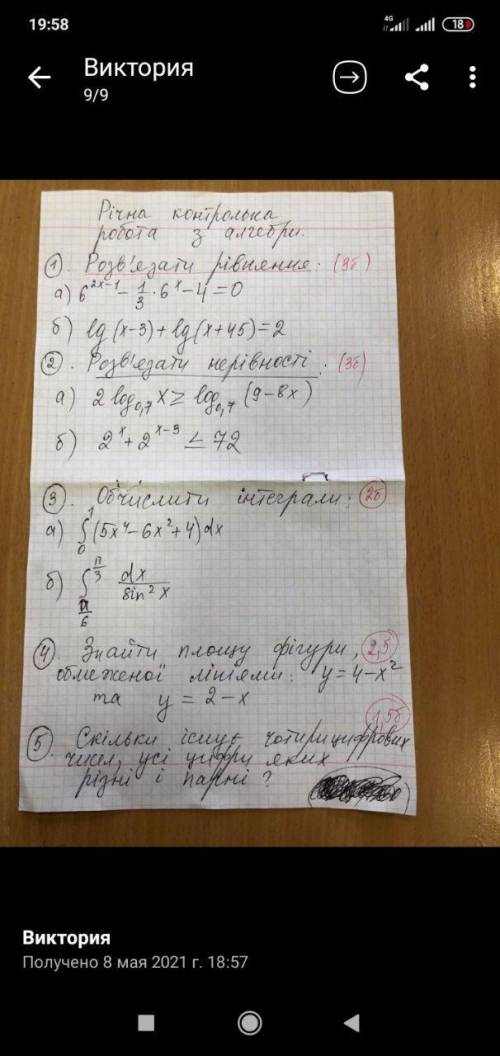 19:58
4G
18
Виктория
9/9
Річна контрольна
робота з алгебри.
1. Розв'язати рівняння: (3б)
а) 6^{2x-1} - 1/3 · 6^x - 4 = 0
б) lg(x-3) + lg(x+45) = 2
2. Розв'язати нерівності. (3б)
а) 2 log_{0,7} x ≥ log_{0,7} (9-8x)
б) 2^x + 2^{x-3} ≤ 72
3. Обчислити інтеграли: 2б
а) ∫_0^1 (5x^4 - 6x^2 + 4) dx
б) ∫_{π/6}^{π/3} dx / sin^2 x
4. Знайти площу фігури, 2,5
обмеженої лініями: y = 4 - x^2
та y = 2 - x
1,5б
5. Скільки існує чотирицифрових
чисел, усі цифри яких
різні і парні?
Виктория
Получено 8 мая 2021 г. 18:57